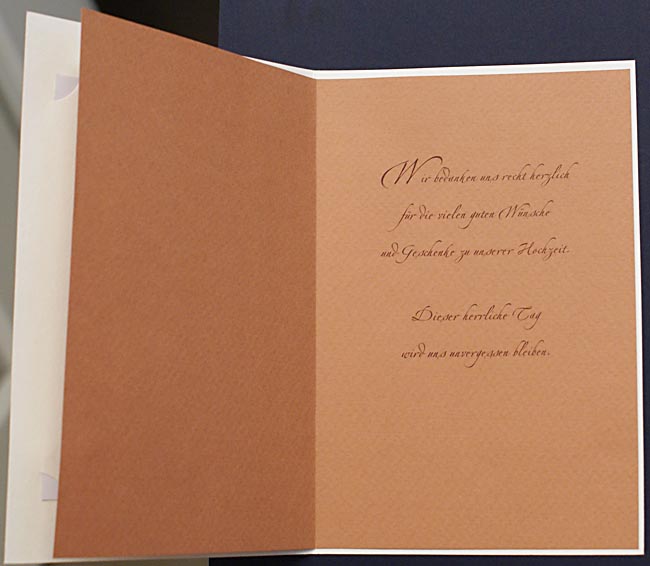 Wir bedanken uns recht herzlich
für die vielen guten Wünsche
und Geschenke zu unserer Hochzeit.
Dieser herrliche Tag
wird uns unvergessen bleiben.